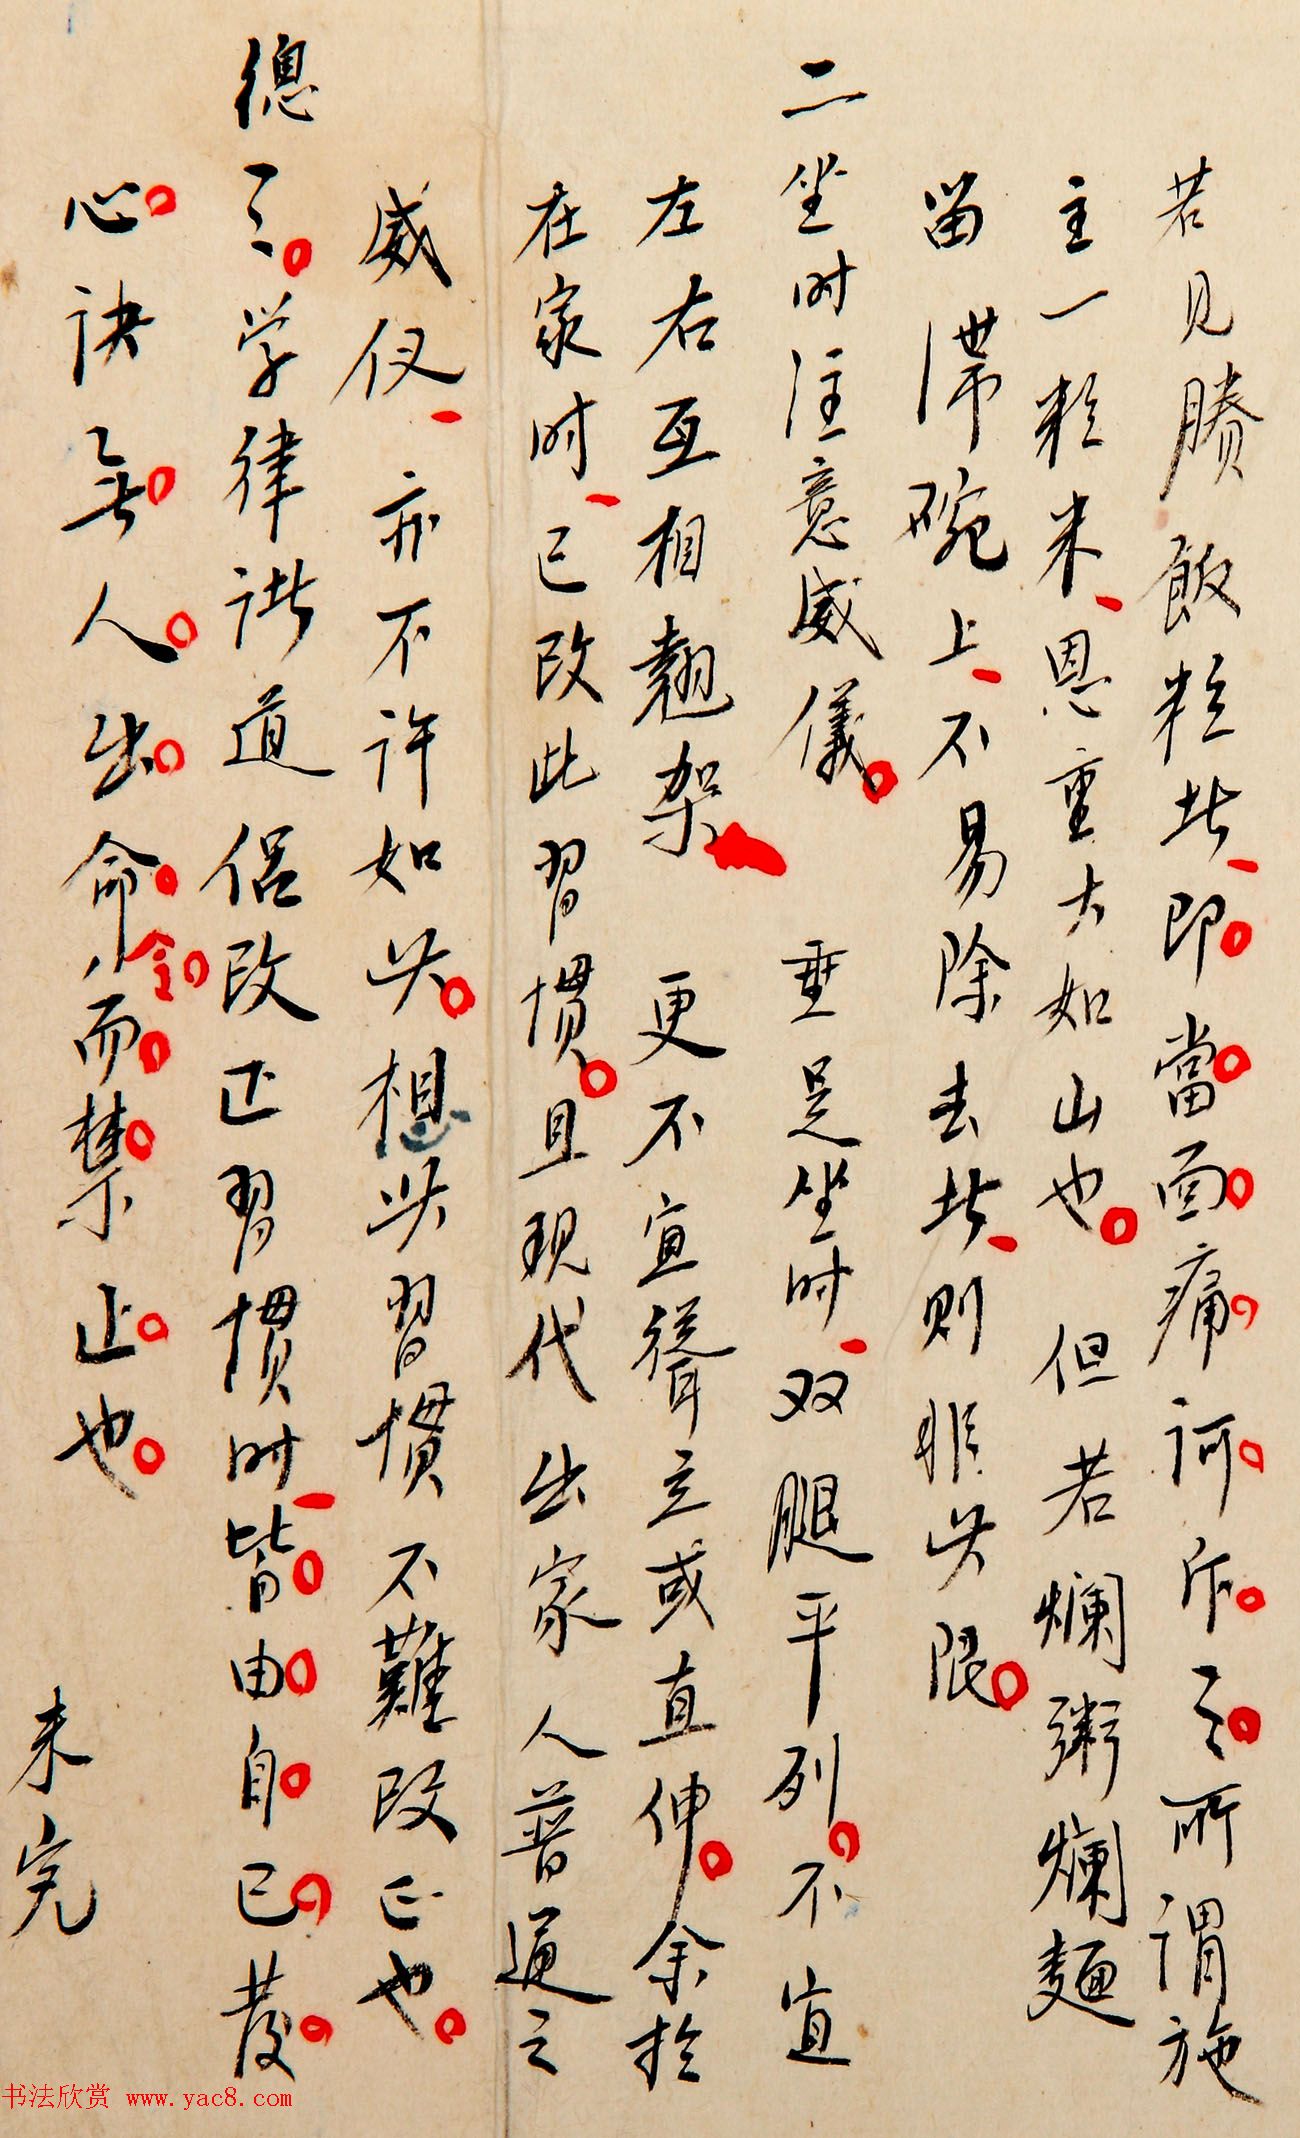 若見賸飯粒此即當面痛訶斥之所謂施
主一粒米恩重大如山也但若爛粥爛麵
留滯碗上不易除去者則非此限
二坐时注意威儀。垂足坐时双腿平列。不宜
左右互相翹架更不宜聳立或直伸。余於
在家时已改此習惯。且现代出家人普通之
威仪亦不许如此。想此習惯不難改正也。
總之。学律诸道侣改正習惯时皆由自己發
心。决無人出命令而禁止也。
未完
书法欣赏 www.yac8.com